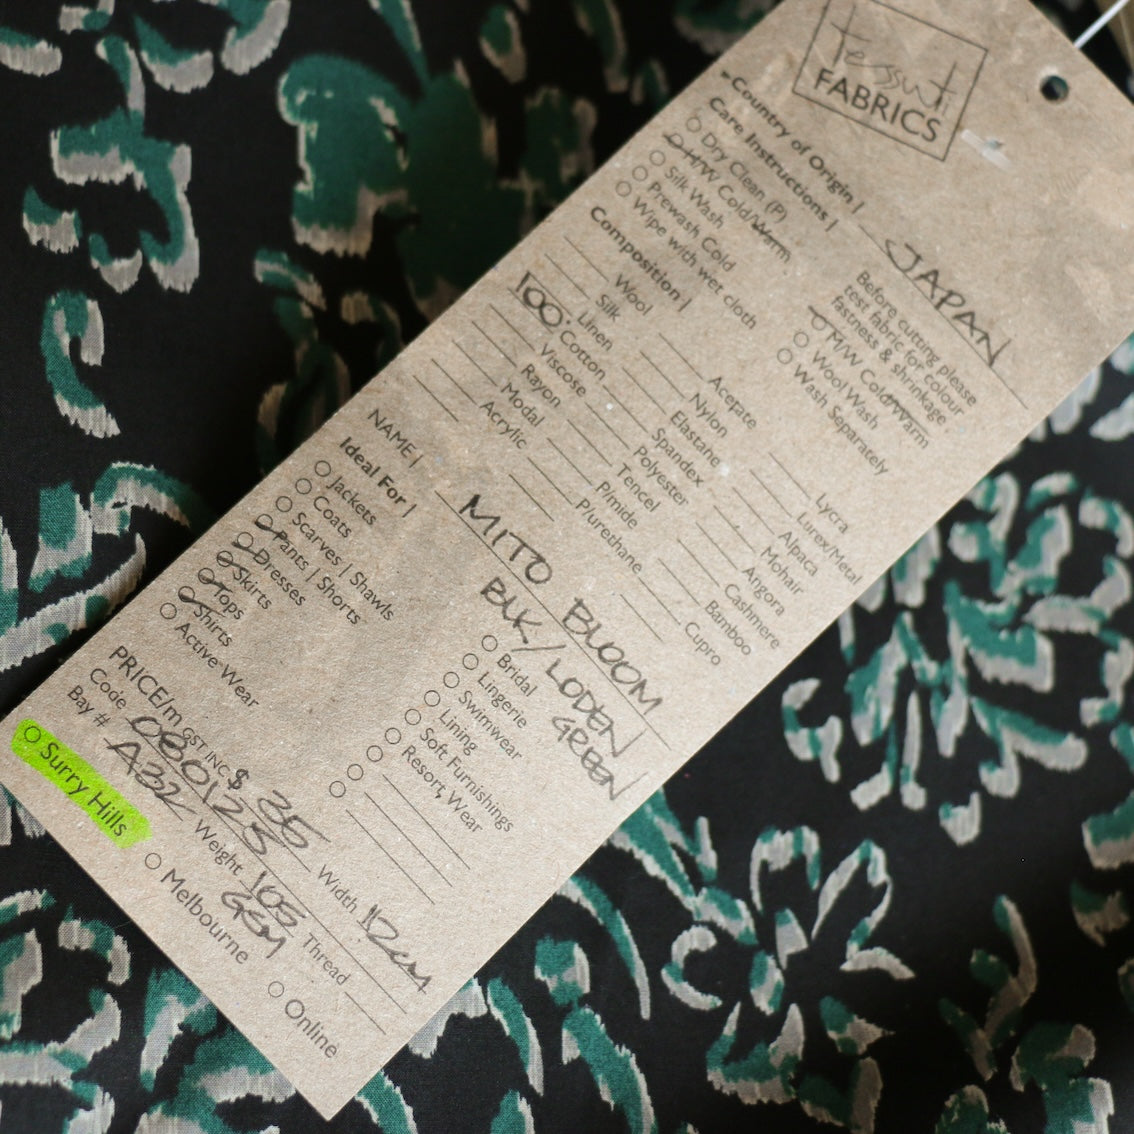 tessuti
FABRICS
Country of Origin | JAPAN
Care Instructions |
Before cutting please
test fabric for colour
fastness & shrinkage.
Dry Clean (P)
H/W Cold/Warm
Silk Wash
Prewash Cold
Wipe with wet cloth
M/W Cold/Warm
Wool Wash
Wash Separately
Composition |
Wool
Silk
Linen
100% Cotton
Viscose
Rayon
Modal
Acrylic
Acetate
Nylon
Elastane
Spandex
Polyester
Tencel
P/mide
P/urethane
Lycra
Lurex/Metal
Alpaca
Mohair
Angora
Cashmere
Bamboo
Cupro
NAME | MITO BLOOM
BLK/LODEN
GREEN
Ideal For |
Jackets
Coats
Scarves | Shawls
Pants | Shorts
Dresses
Skirts
Tops
Shirts
Active Wear
Bridal
Lingerie
Swimwear
Lining
Soft Furnishings
Resort Wear
PRICE/m GST INC $ 35
Code 0800125 Width 112cm
Bay # A32 Weight 105 GSM Thread
Surry Hills
Melbourne
Online